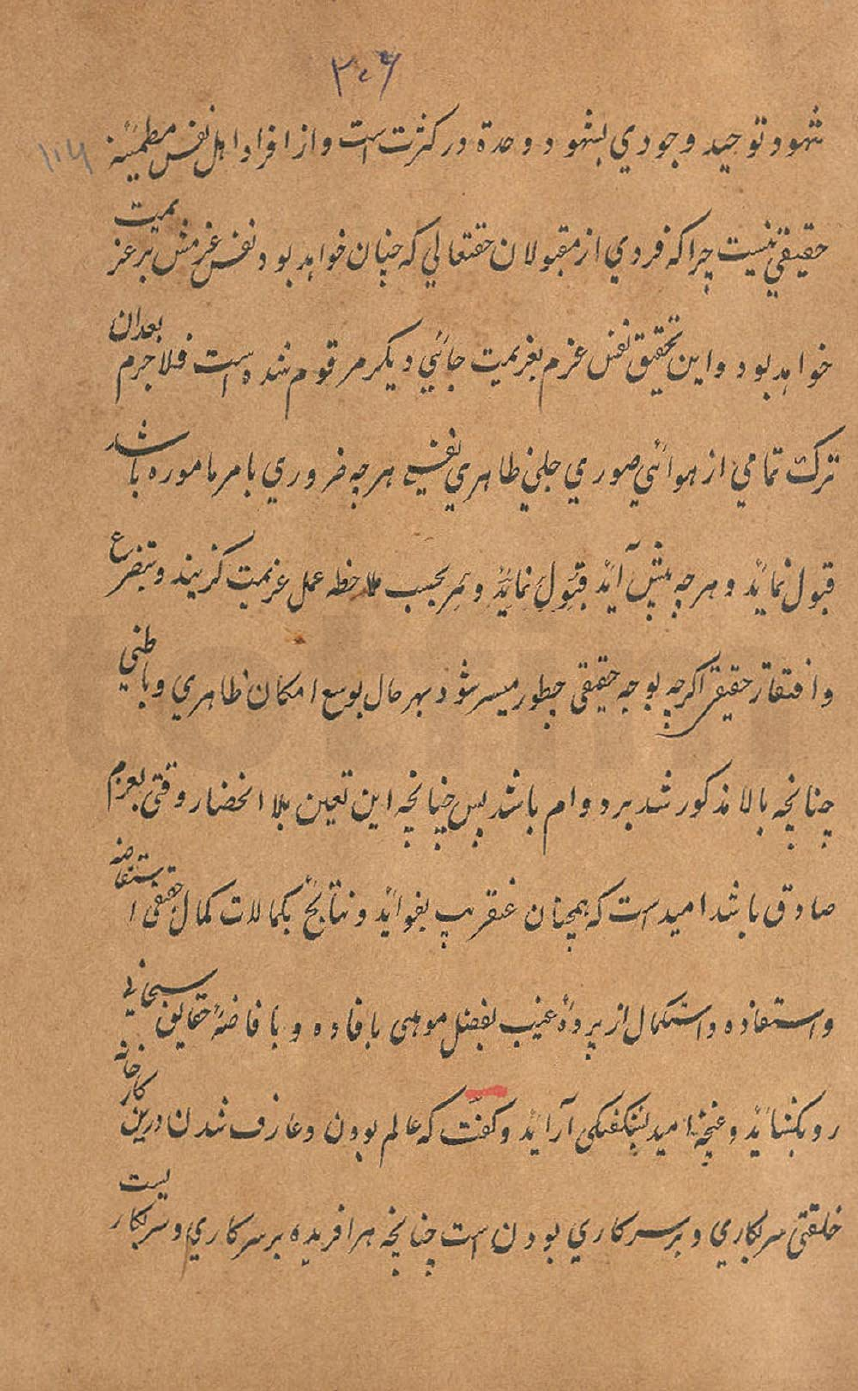 ۳۰۶
شهود توحيد وجودي بشهود وحدة در كثرت است و از افراد اهل نفس مطمئنه
حقيقي نيست چرا كه فردي از مقبولان حقتعالي كه چنان خواهد بود نفس عزمش بر عزيمت
خواهد بود و اين تحقيق نفس عزم بعزيمت جائي ديكر مرقوم شده است فلاجرم بعد ان
ترك تمامي از هوائي صوري جلي ظاهري نفسي هرچه ضروري بامر ماموره باشد
قبول نمايد و هرچه پيش آيد قبول نمايد و بحسب ملاحظه عمل عزيمت كزيند و تبضرع
و افتقار حقيقي اكرچه بوجه حقيقي چطور ميسر شود بهر حال بوسع امكان ظاهري و باطني
چنانچه بالا مذكور شد بر دوام باشد پس چنانچه اين تعين بلا انحضار وقتي بعزم
صادق باشد اميد است كه همچنان عنقريب بفوائد و نتائج بكمالات كمال حقيقي استفاضه
و استفاده و استكمال از پردهٔ غيب بفضل موهبي بافاده و بافاضهٔ حقايق سبحاني
رو بكشايد و غنچهٔ اميد بشكفتكي آرايد و كفت كه عالم بودن و عارف شدن درين كارخانه
خلقتي سربكاري و برسركاري بودن است چنانچه هر افريده بر سركاري و سربكاريست